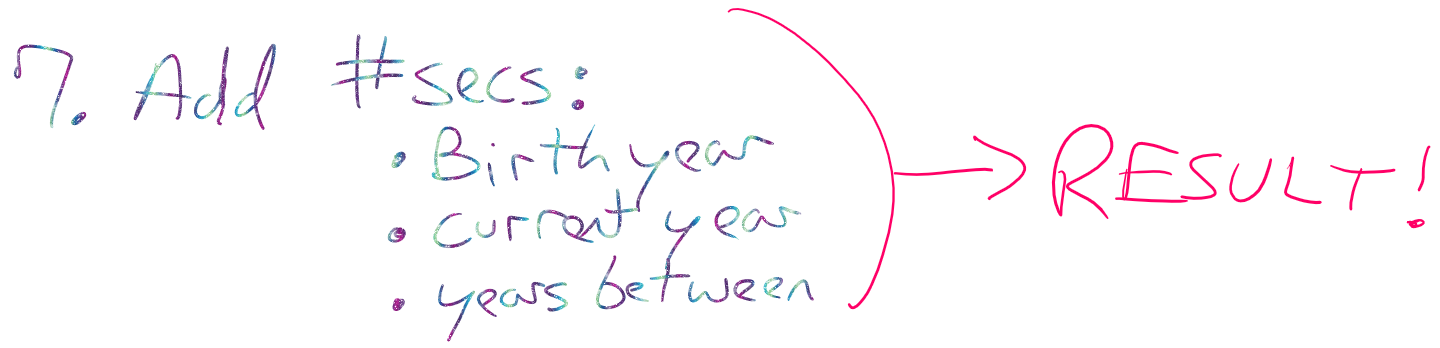 7. Add #secs:
• Birth year
• current year
• years between
RESULT!